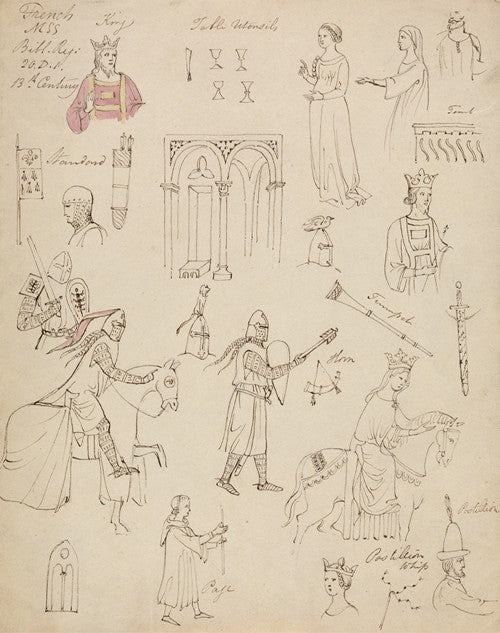 French
MSS
Bibl. Reg:
20. D. 1.
13th Century
King
Table Utensils
Tomb
Standard
Trumpet
Horn
Page
Postillion
Whip
Postillion